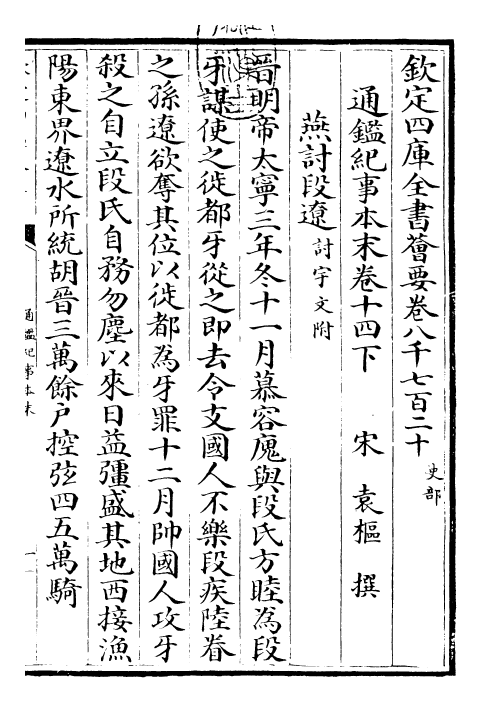 欽定四庫全書薈要卷八千七百二十 史部
通鑑紀事本末卷十四下 宋 袁樞 撰
燕討段遼 討宇文附
晉明帝太寧三年冬十一月慕容廆與段氏方睦為段
牙謀使之徙都牙從之即去令支國人不樂段疾陸眷
之孫遼欲奪其位以徙都為牙罪十二月帥國人攻牙
殺之自立段氏自務勿塵以來日益彊盛其地西接漁
陽東界遼水所統胡晉三萬餘户控弦四五萬騎
通鑑紀事本末